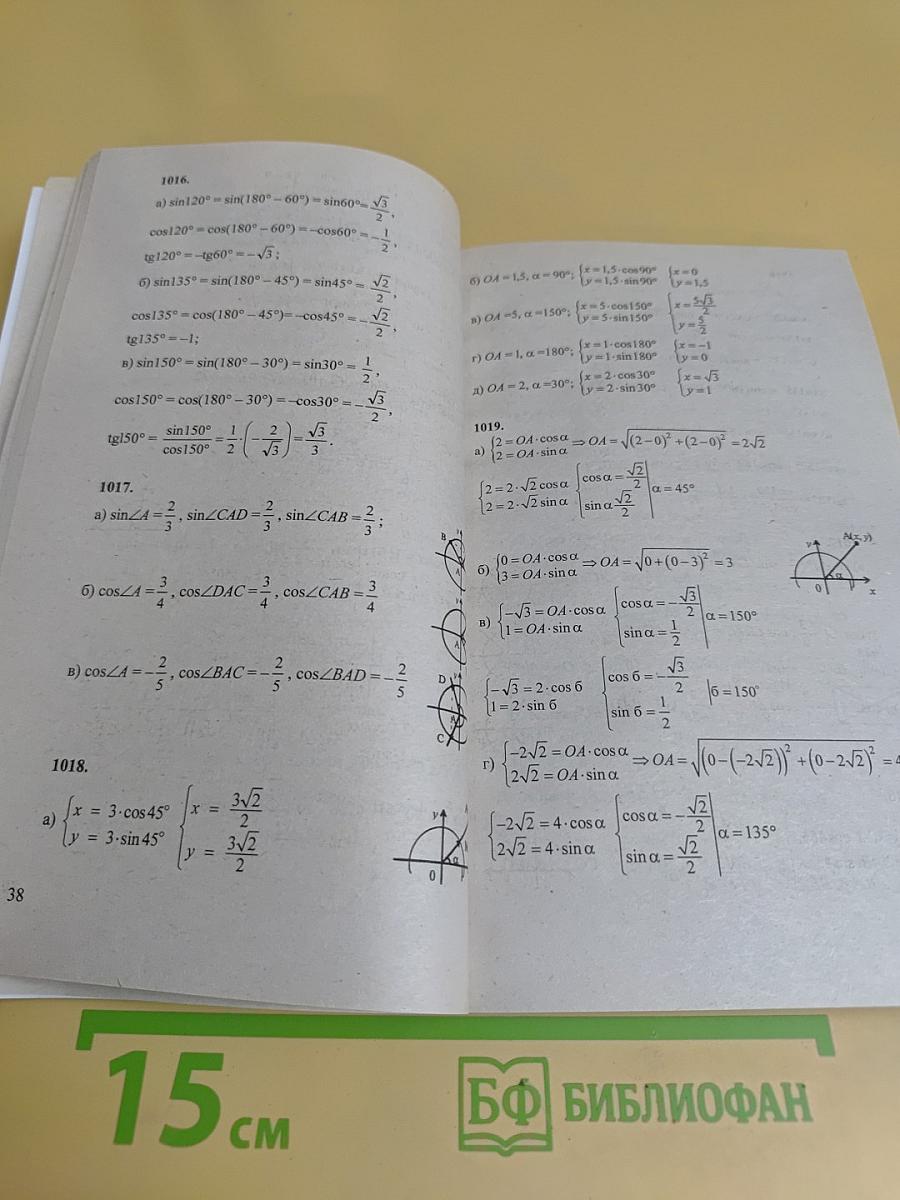 1016.
а) sin120° = sin(180° – 60°) = sin60° = √3/2,
cos120° = cos(180° – 60°) = –cos60° = –1/2,
tg120° = –tg60° = –√3;
б) sin135° = sin(180° – 45°) = sin45° = √2/2,
cos135° = cos(180° – 45°)= –cos45° = –√2/2,
tg135° = –1;
в) sin150° = sin(180° – 30°) = sin30° = 1/2,
cos150° = cos(180° – 30°) = –cos30° = –√3/2,
tgl50° = sin150°/cos150° = 1/2·(–2/√3) = √3/3.
1017.
а) sin∠A = 2/3, sin∠CAD = 2/3, sin∠CAB = 2/3;
B
A
б) cos∠A = 3/4, cos∠DAC = 3/4, cos∠CAB = 3/4
A
в) cos∠A = –2/5, cos∠BAC = –2/5, cos∠BAD = –2/5
D
A
C
1018.
а) {x = 3·cos45° y = 3·sin45° {x = 3√2/2 y = 3√2/2
y
α
0
38
б) OA = 1,5, α = 90°; {x = 1,5·cos90° y = 1,5·sin90° {x = 0 y = 1,5
в) OA =5, α =150°; {x = 5·cos150° y = 5·sin150° {x = 5√3/2 y = 5/2
г) OA = 1, α =180°; {x = 1·cos180° y = 1·sin180° {x = –1 y = 0
д) OA = 2, α =30°; {x = 2·cos30° y = 2·sin30° {x = √3 y = 1
1019.
а) {2 = OA·cosα 2 = OA·sinα ⇒ OA = √((2–0)² + (2–0)²) = 2√2
{2 = 2·√2 cosα 2 = 2·√2 sinα {cosα = √2/2 sinα √2/2 | α = 45°
б) {0 = OA·cosα 3 = OA·sinα ⇒ OA = √(0 + (0–3)²) = 3
y
A(x, y)
α
0
x
в) {–√3 = OA·cosα 1 = OA·sinα {cosα = –√3/2 sinα = 1/2 | α = 150°
{–√3 = 2·cos б 1 = 2·sin б {cos б = –√3/2 sin б = 1/2 | б = 150°
г) {–2√2 = OA·cosα 2√2 = OA·sinα ⇒ OA = √((0–(–2√2))² + (0–2√2)²) = 4
{–2√2 = 4·cosα 2√2 = 4·sinα {cosα = –√2/2 sinα = √2/2 | α = 135°
15 см
БФ БИБЛИОФАН